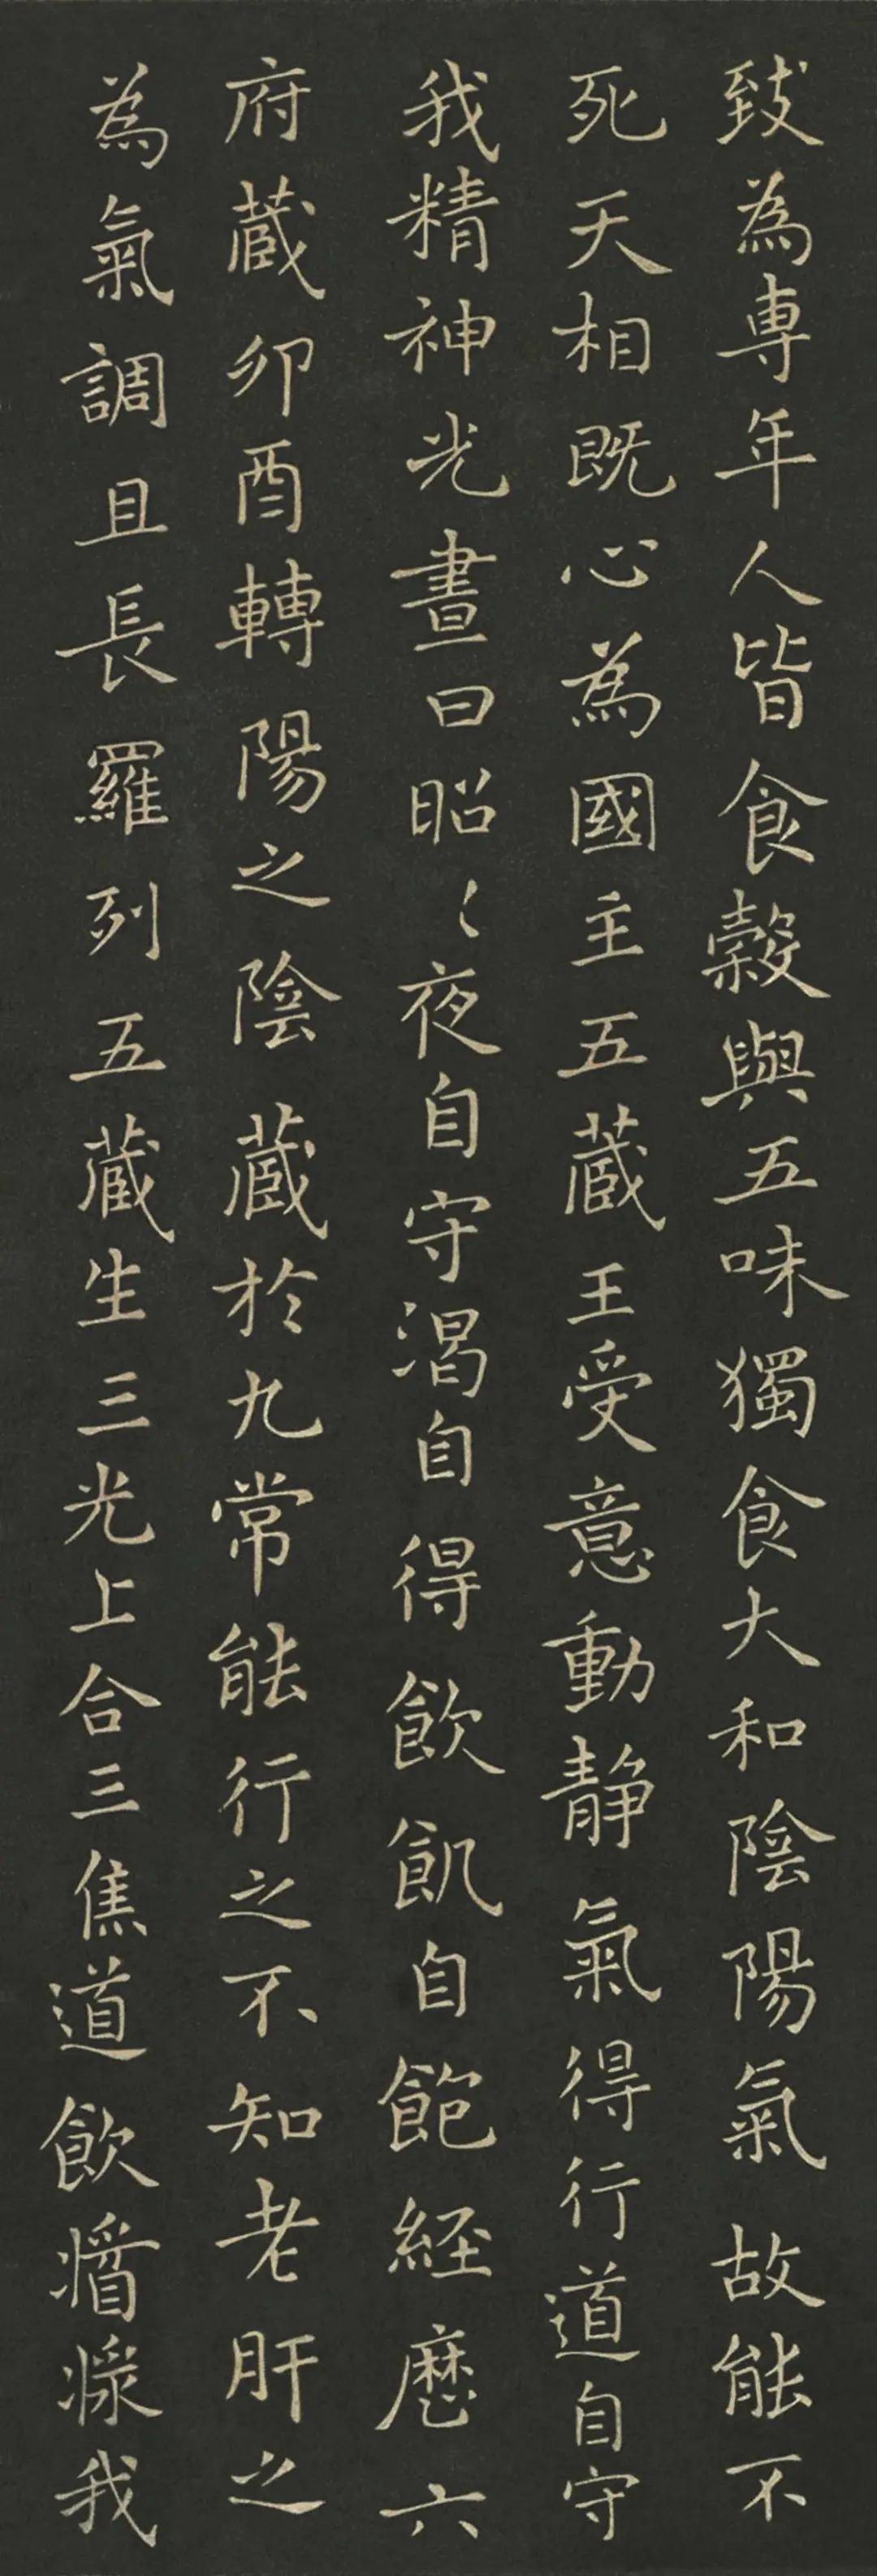 致為専年人皆食穀與五味獨食大和陰陽氣故能不
死天相既心為國主五蔵王受意動静氣得行道自守
我精神光晝日昭〻夜自守渴自得飲飢自飽経歷六
府蔵卯酉轉陽之陰蔵於九常能行之不知老肝之
為氣調且長羅列五蔵生三光上合三焦道飲漿我